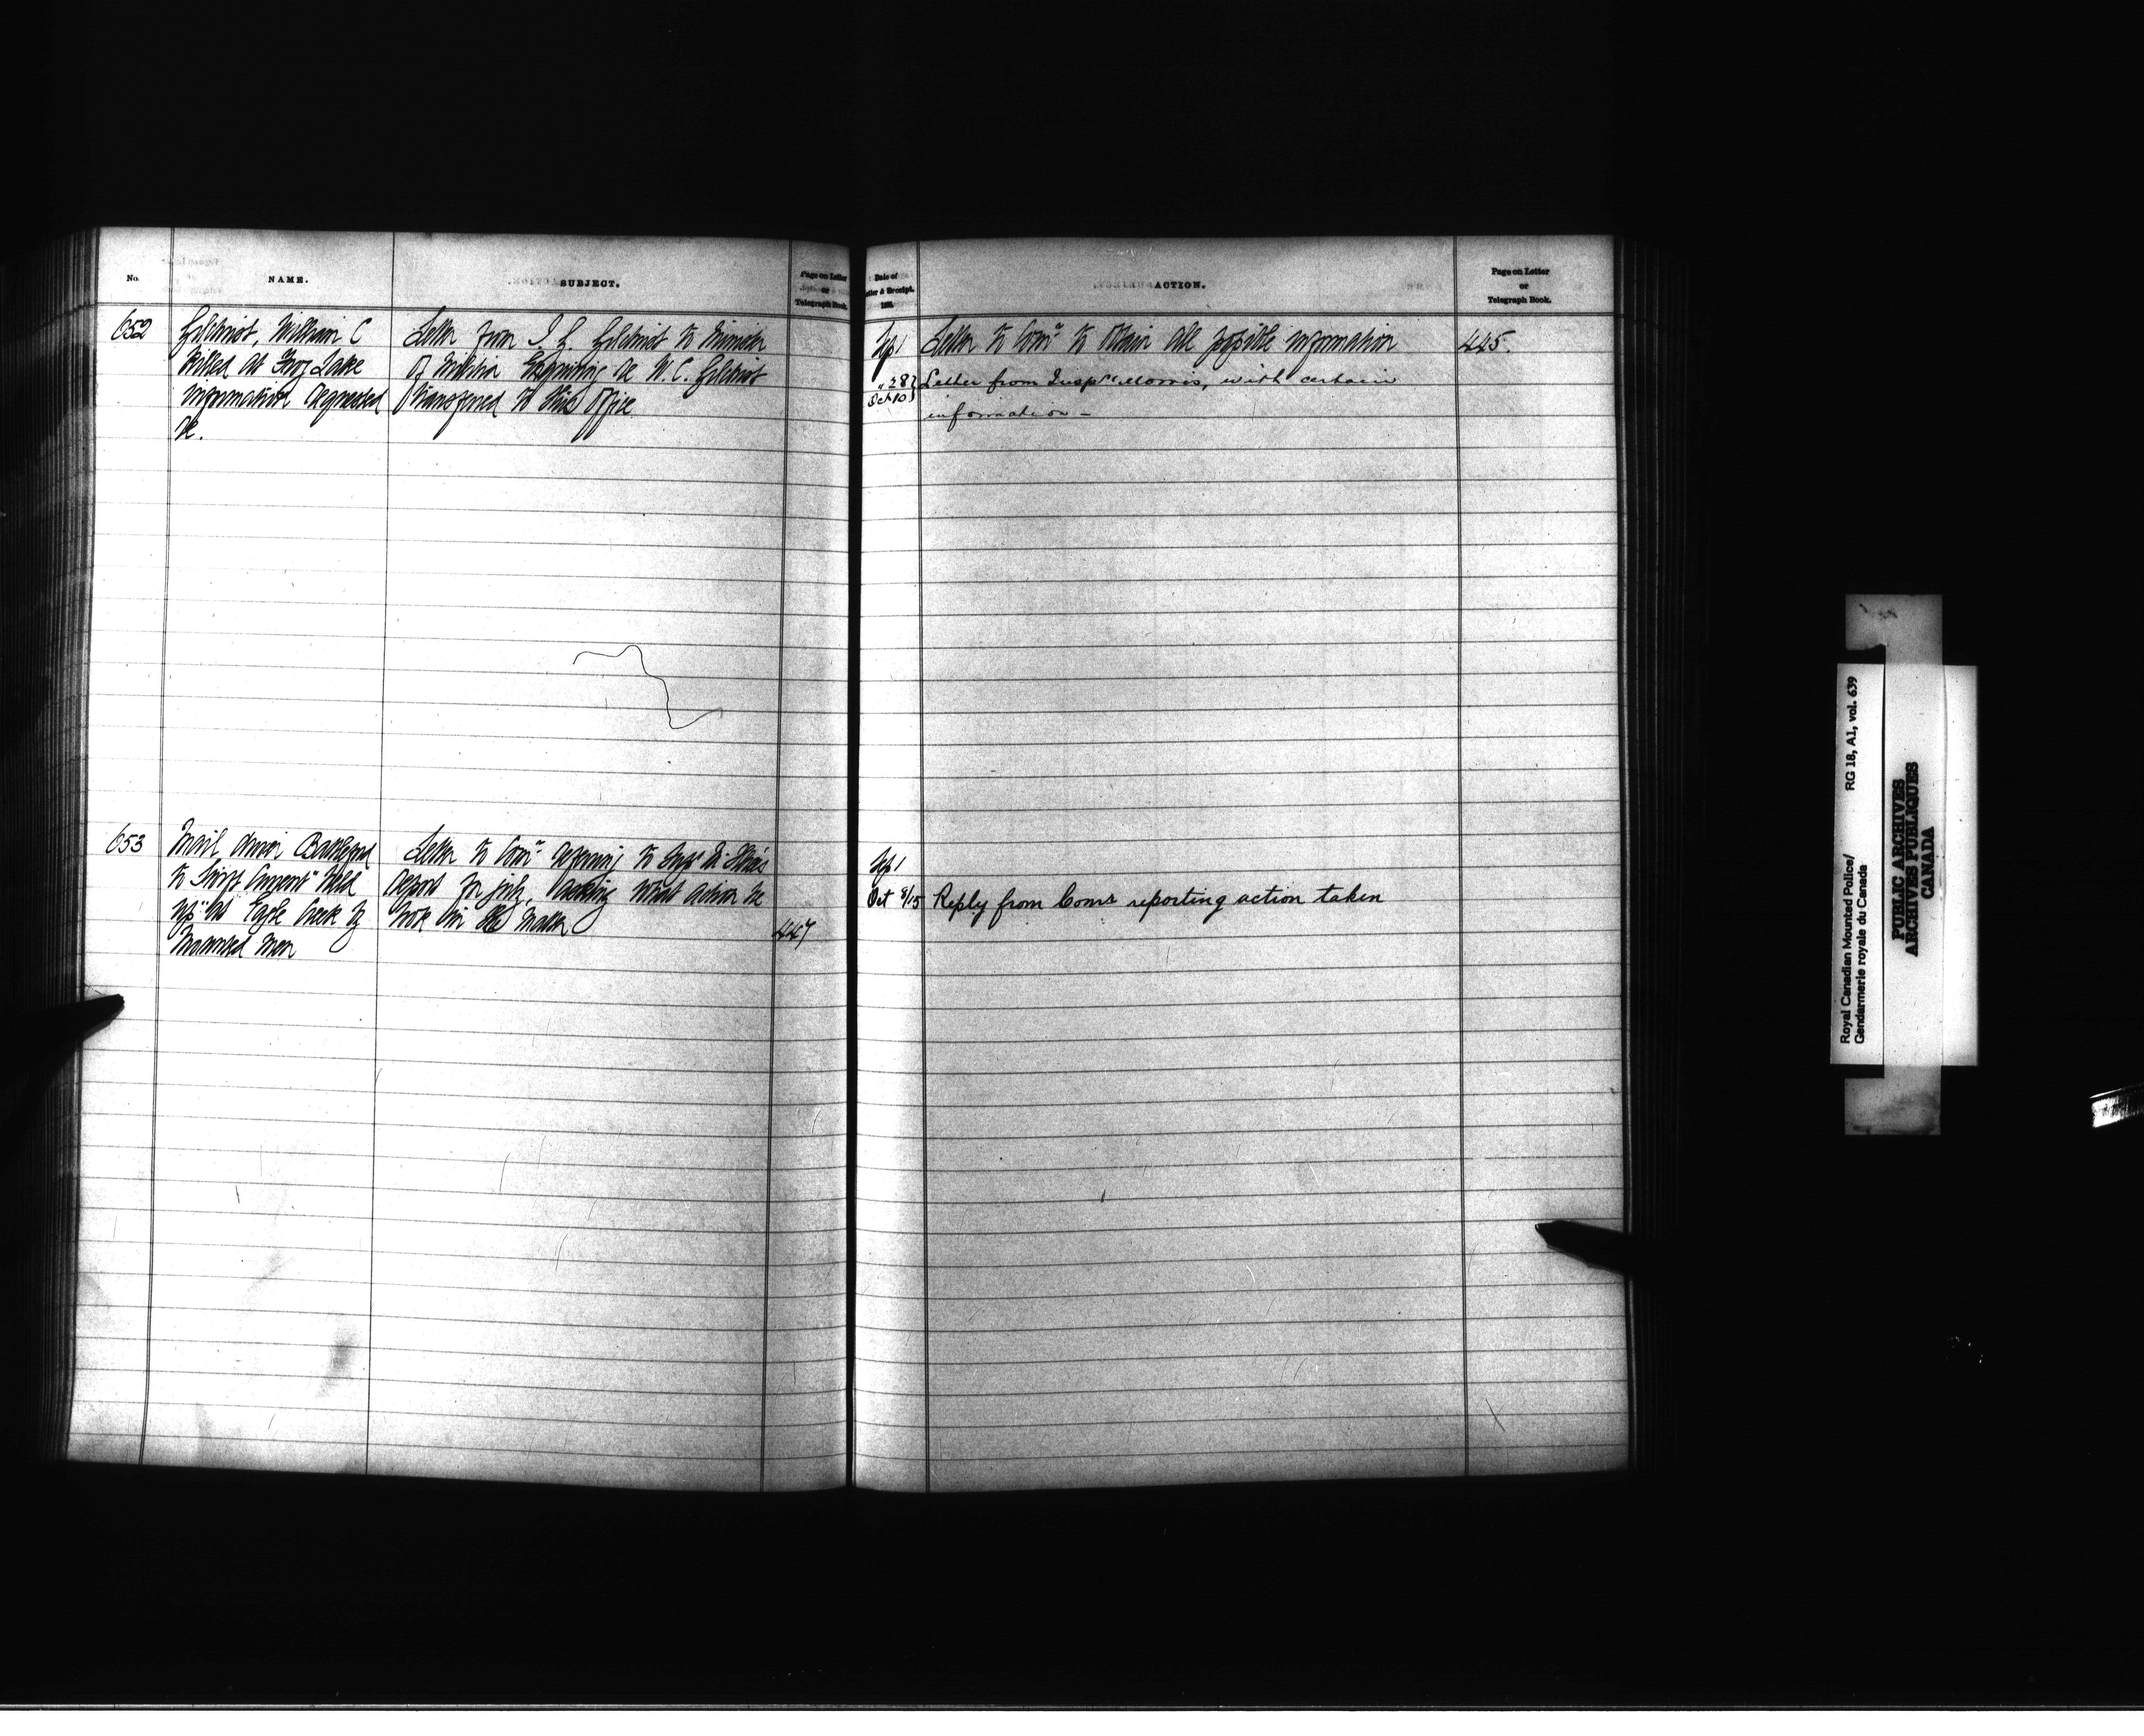 No.
NAME.
SUBJECT.
Page on Letter
or
Telegraph Book.
652
Gilchrist, William C
Killed at Frog Lake
information requested
re.
Letter from J. G. Gilchrist to Minister
of Militia Enquiring re W. C. Gilchrist
transferred to this Office
653
Mail driver Battleford
to Swift Current "held
up" at Eagle Creek by
Mounted men
Letter to Comr referring to Supt
report for July, asking what action he
took in the matter
447
Date of
Letter & Receipt.
ACTION.
Page on Letter
or
Telegraph Book.
Sep 1
Letter to Comr to obtain all possible information
445.
" 28
Oct 10
Letter from Insp Morris, with certain
information –
Sep 1
Oct 8/15
Reply from Comr reporting action taken
Royal Canadian Mounted Police/
Gendarmerie royale du Canada
RG 18, A1, vol. 639
PUBLIC ARCHIVES
ARCHIVES PUBLIQUES
CANADA